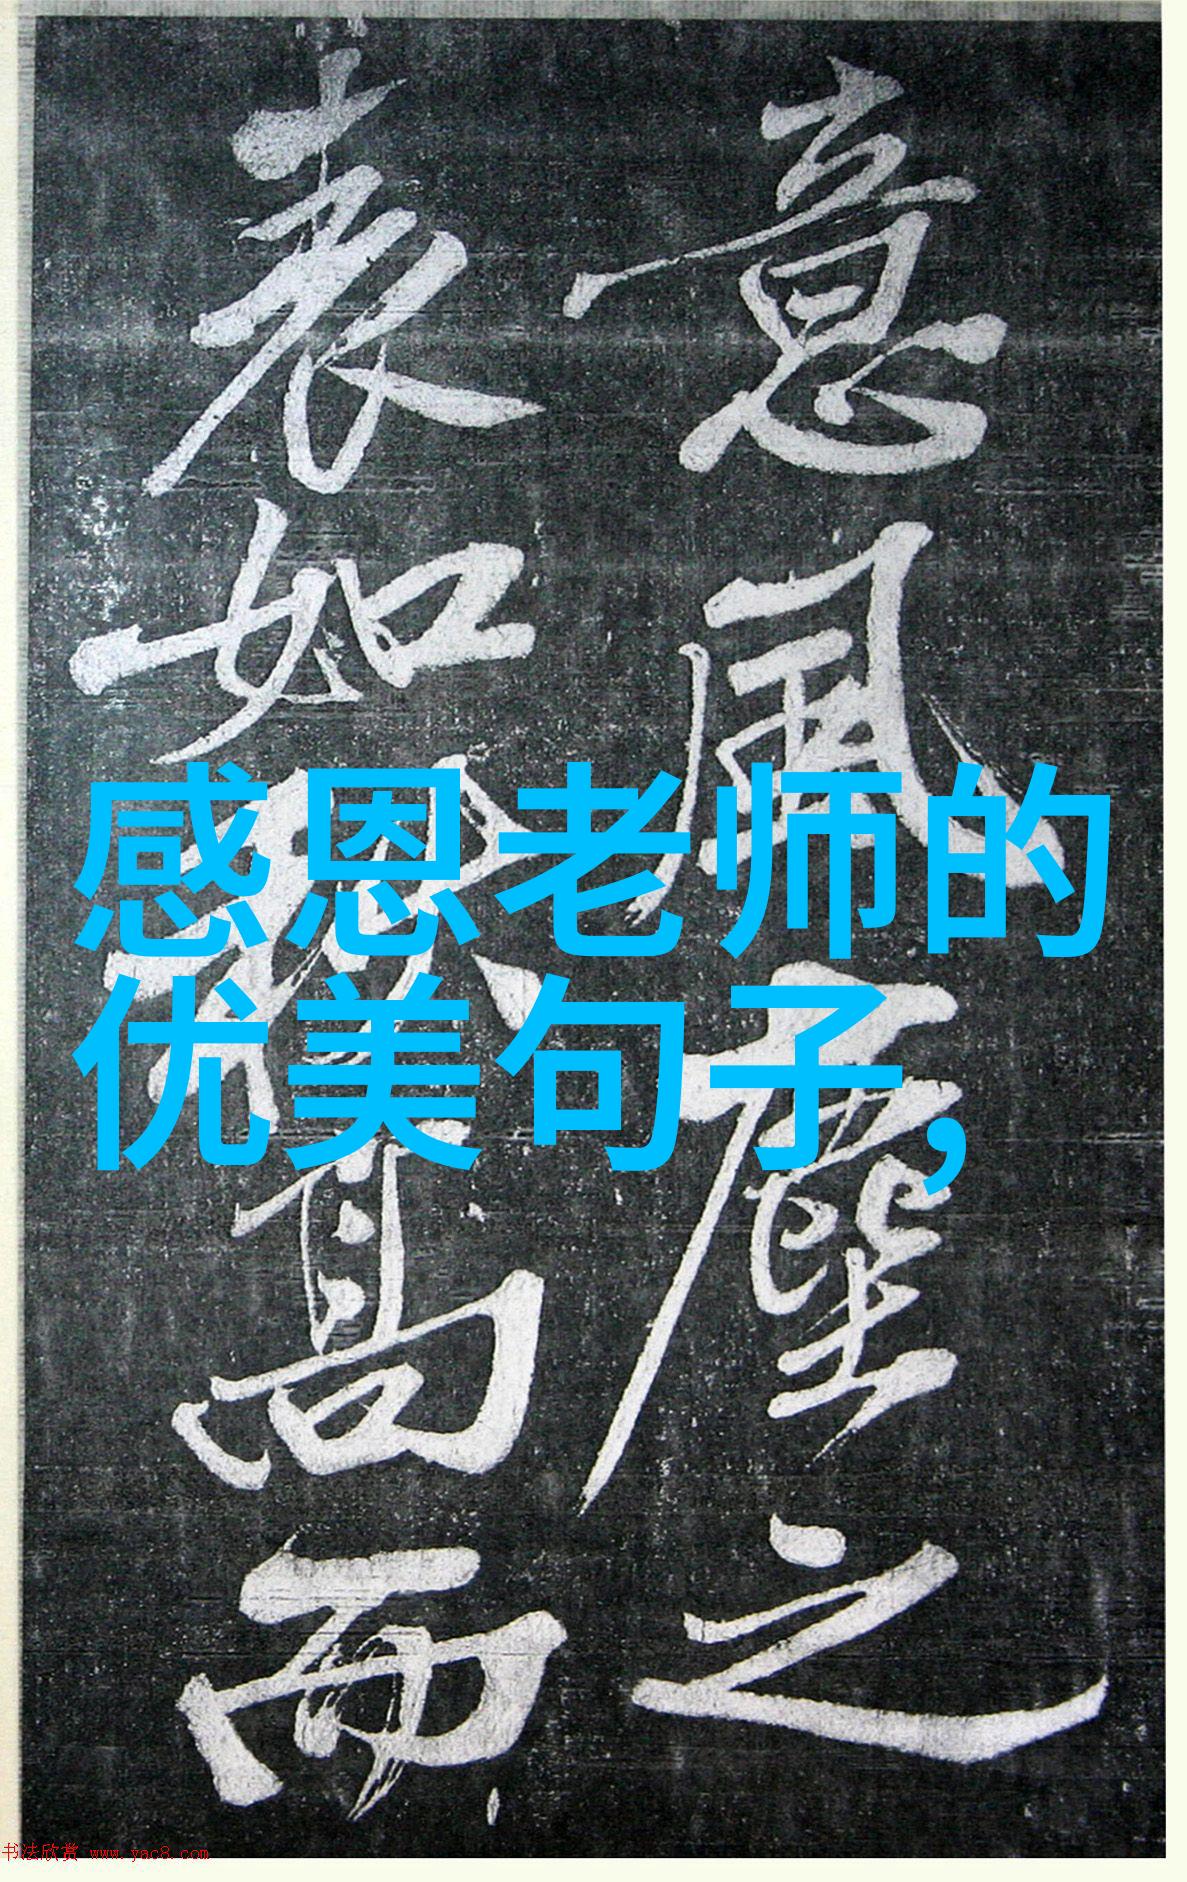 感恩老师的
优美句子,
意風塵之
表如高而
书法欣赏 www.yac8.com